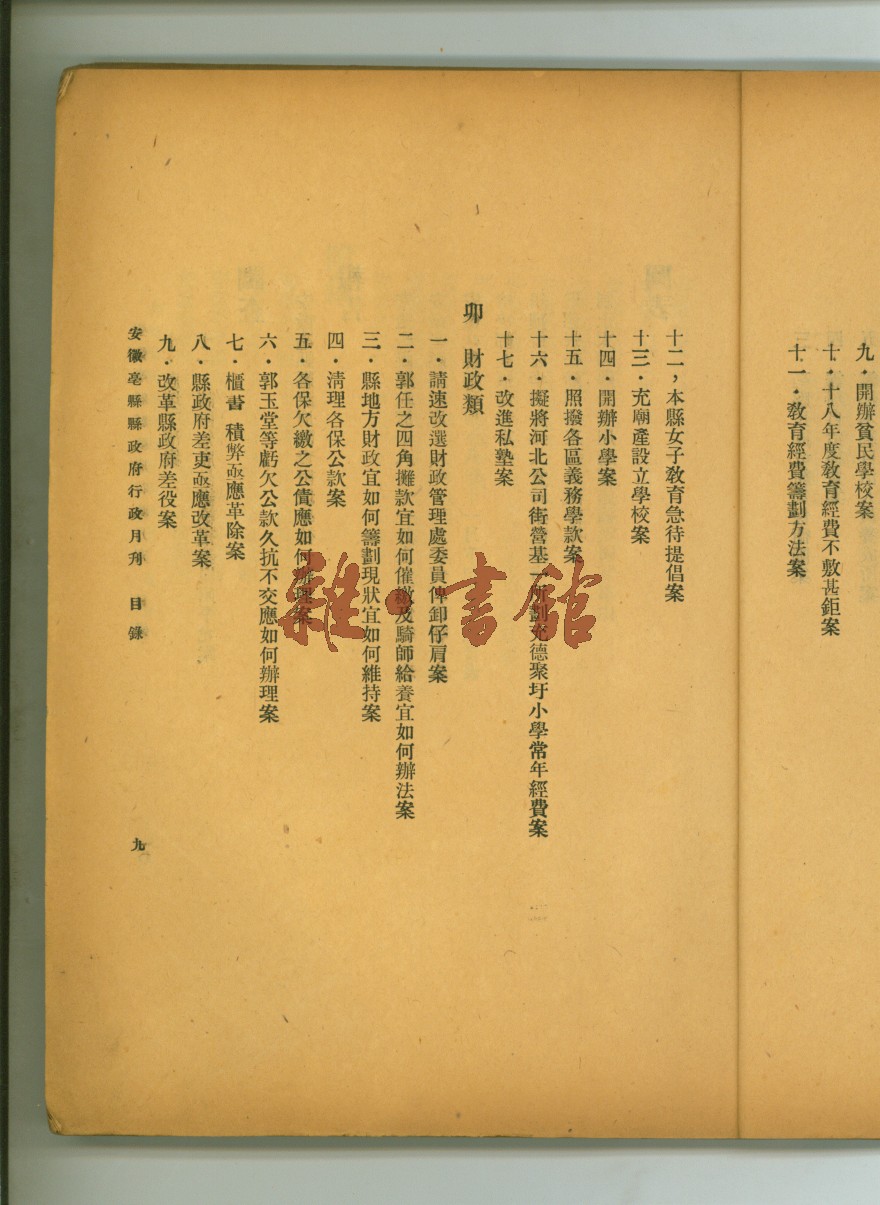 九．開辦貧民學校案
十．十八年度教育經費不敷甚鉅案
十一．教育經費籌劃方法案
十二，本縣女子教育急待提倡案
十三．充廟產設立學校案
十四．開辦小學案
十五．照撥各區義務學款案
十六．擬將河北公司街營基一所劃充德聚圩小學常年經費案
十七．改進私塾案
卯　財政類
一．請速改選財政管理處委員俾卸仔肩案
二．郭任之四角攤款宜如何催繳及騎師給養宜如何辦法案
三．縣地方財政宜如何籌劃現狀宜如何維持案
四．清理各保公款案
五．各保欠繳之公債應如何辦理案
六．郭玉堂等虧欠公款久抗不交應如何辦理案
七．櫃書 積弊亟應革除案
八．縣政府差吏亟應改革案
九．改革縣政府差役案
安徽亳縣縣政府行政月刋　目錄
九
雜·書館